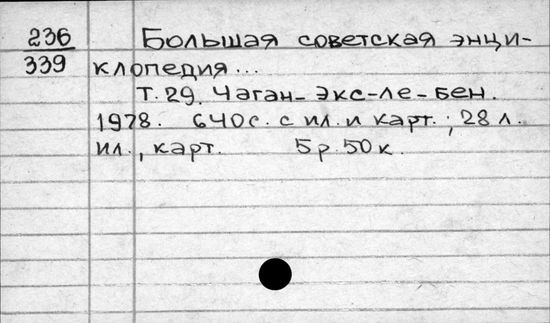 236
339
Большая советская энци-
клопедия...
Т. 29. Чаган- Экс-ле-бен.
1978. 640с. с ил. и карт.; 28 л.
ил., карт. 5р. 50к.